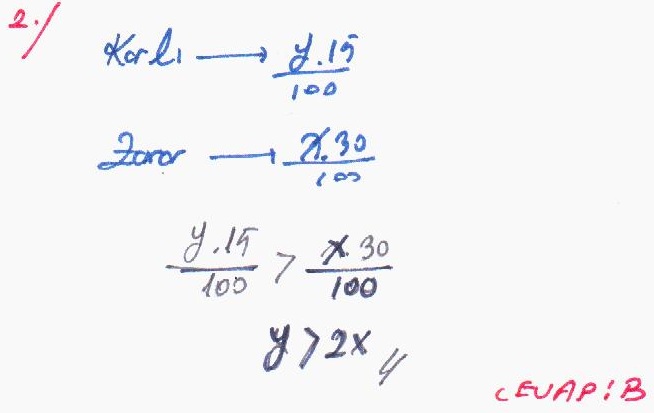 2./
Karlı → y.15/100
Zarar → x.30/100
y.15/100 > x.30/100
y > 2x //
CEVAP: B